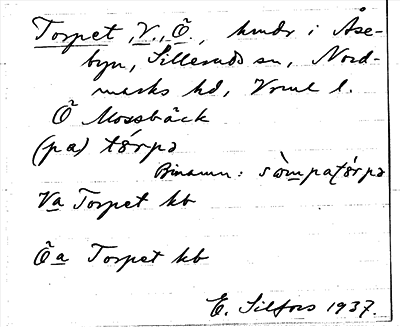 Torpet, V., Ö., hmdr i Åse-
byn, Silleruds sn, Nord-
marks hd, Vrml l.
Ö Mossbäck
(pa) tórpə
Binamn: sòmpatórpə
Va Torpet kb
Öa Torpet kb
E. Silfors 1937.